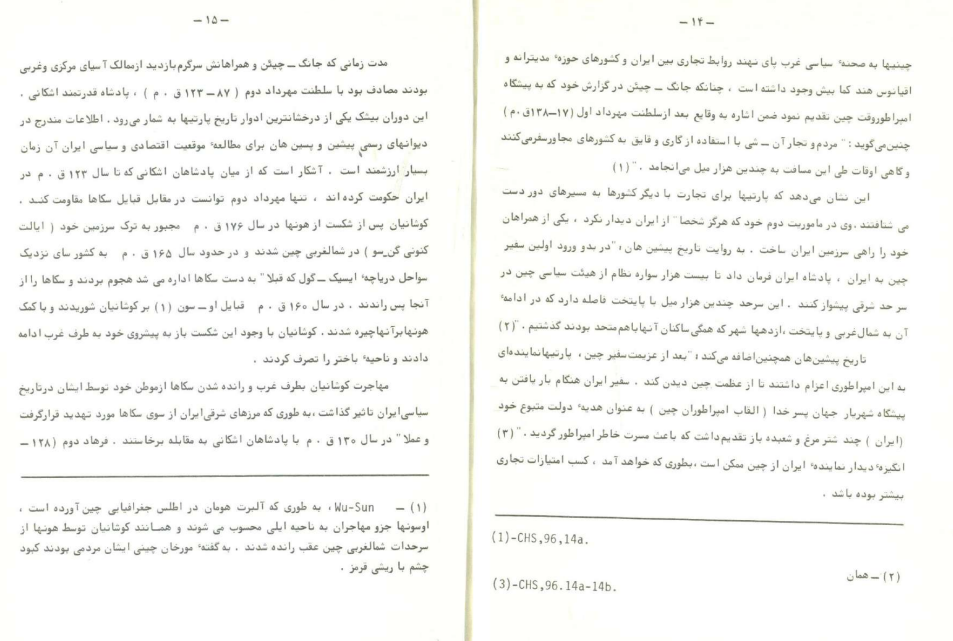 ـ ۱۴ ـ
چینیها به صحنهٔ سیاسی غرب پای نهند روابط تجاری بین ایران و کشورهای حوزهٔ مدیترانه و
اقیانوس هند کما بیش وجود داشته است ، چنانکه جانگ ـ چیئن در گزارش خود که به پیشگاه
امپراطوروقت چین تقدیم نمود ضمن اشاره به وقایع بعد ازسلطنت مهرداد اول (۱۷ـ۱۳۸ق.م )
چنین‌می‌گوید : " مردم و تجار آن ـ شی با استفاده از گاری و قایق به کشورهای مجاورسفرمی‌کنند
و گاهی اوقات طی این مسافت به چندین هزار میل می‌انجامد . " (۱)
این نشان می‌دهد که پارتیها برای تجارت با دیگر کشورها به مسیرهای دور دست
می شتافتند . وی در ماموریت دوم خود که هرگز شخصا" از ایران دیدار نکرد ، یکی از همراهان
خود را راهی سرزمین ایران ساخت . به روایت تاریخ پیشین هان ، "در بدو ورود اولین سفیر
چین به ایران ، پادشاه ایران فرمان داد تا بیست هزار سواره نظام از هیئت سیاسی چین در
سر حد شرقی پیشواز کنند . این سرحد چندین هزار میل با پایتخت فاصله دارد که در ادامهٔ
آن به شمال‌غربی و پایتخت ،ازدهها شهر که همگی‌ساکنان آنهاباهم‌متحد بودند گذشتیم . "(۲)
تاریخ پیشین‌هان همچنین‌اضافه می‌کند : "بعد از عزیمت‌سفیر چین ، پارتیهانماینده‌ای
به این امپراطوری اعزام داشتند تا از عظمت چین دیدن کند . سفیر ایران هنگام بار یافتن به
پیشگاه شهریار جهان پسر خدا ( القاب امپراطوران چین ) به عنوان هدیهٔ دولت متبوع خود
(ایران ) چند شتر مرغ و شعبده باز تقدیم‌داشت که باعث مسرت خاطر امپراطور گردید . " (۳)
انگیزهٔ دیدار نمایندهٔ ایران از چین ممکن است ،بطوری که خواهد آمد ، کسب امتیازات تجاری
بیشتر بوده باشد .
(1)-CHS,96,14a.
(۲) ـ همان
(3)-CHS,96.14a-14b.
ـ ۱۵ ـ
مدت زمانی که جانگ ـ چیئن و همراهانش سرگرم‌بازدید ازممالک آسیای مرکزی وغربی
بودند مصادف بود با سلطنت مهرداد دوم ( ۸۷ ـ ۱۲۳ ق . م ) ، پادشاه قدرتمند اشکانی .
این دوران بیشک یکی از درخشانترین ادوار تاریخ پارتیها به شمار می‌رود . اطلاعات مندرج در
دیوانهای رسمی پیشین و پسین هان برای مطالعهٔ موقعیت اقتصادی و سیاسی ایران آن زمان
بسیار ارزشمند است . آشکار است که از میان پادشاهان اشکانی که تا سال ۱۲۳ ق . م در
ایران حکومت کرده اند ، تنها مهرداد دوم توانست در مقابل قبایل سکاها مقاومت کنـد .
کوشانیان پس از شکست از هونها در سال ۱۷۶ ق . م مجبور به ترک سرزمین خود ( ایالت
کنونی گن‌سو ) در شمالغربی چین شدند و در حدود سال ۱۶۵ ق . م به کشور سای نزدیک
سواحل دریاچهٔ ایسیک ـ گول که قبلا" به دست سکاها اداره می شد هجوم بردند و سکاها را از
آنجا پس راندند . در سال ۱۶۰ ق . م قبایل او ـ سون (۱) بر کوشانیان شوریدند و با کمک
هونهابرآنهاچیره شدند . کوشانیان با وجود این شکست باز به پیشروی خود به طرف غرب ادامه
دادند و ناحیهٔ باختر را تصرف کردند .
مهاجرت کوشانیان بطرف غرب و رانده شدن سکاها ازموطن خود توسط ایشان درتاریخ
سیاسی‌ایران تاثیر گذاشت ،به طوری که مرزهای شرقی‌ایران از سوی سکاها مورد تهدید قرارگرفت
و عملا" در سال ۱۳۰ ق . م با پادشاهان اشکانی به مقابله برخاستند . فرهاد دوم (۱۲۸ ـ
(۱) ـ Wu-Sun ، به طوری که آلبرت هومان در اطلس جغرافیایی چین آورده است ،
اوسونها جزو مهاجران به ناحیه ایلی محسوب می شوند و همـانند کوشانیان توسط هونها از
سرحدات شمالغربی چین عقب رانده شدند . به گفتهٔ مورخان چینی ایشان مردمی بودند کبود
چشم با ریشی قرمز .